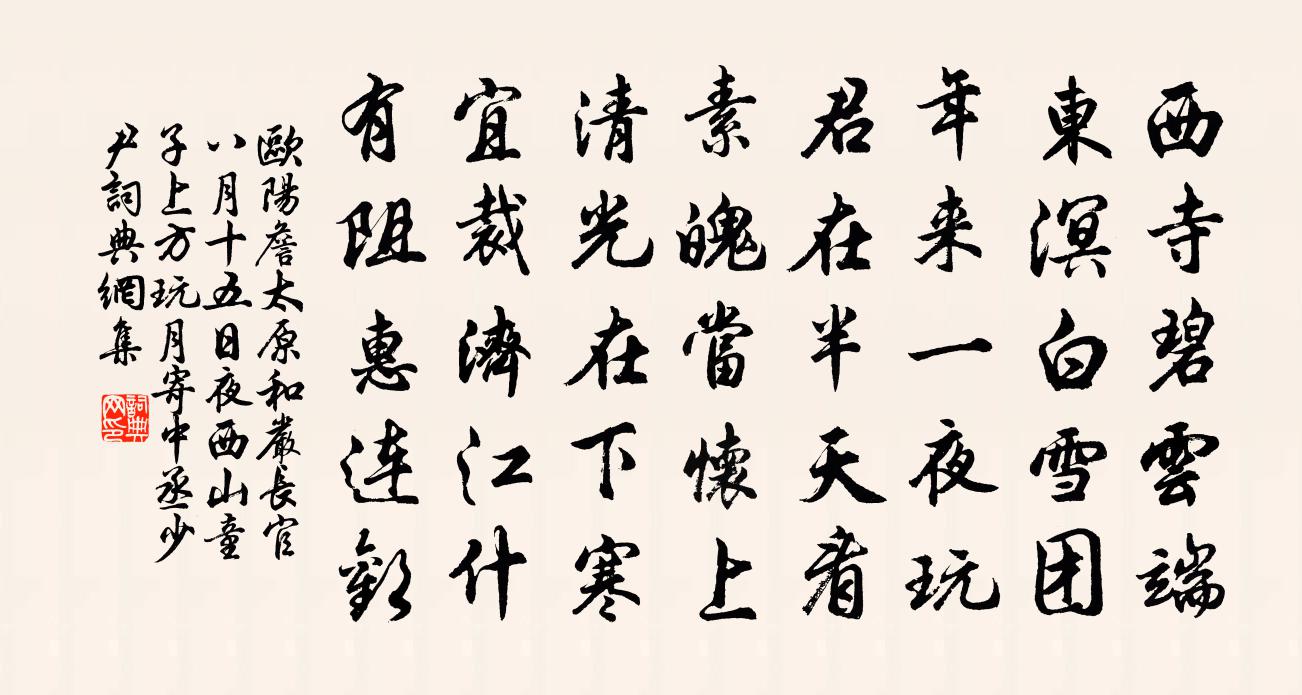 西寺碧雲端
東溟白雪团
年来一夜玩
君在半天看
素魄當懷上
清光在下寒
宜裁濟江什
有阻惠連歡
歐陽詹太原和嚴長官
八月十五日夜西山童
子上方玩月寄中丞少
尹詞典網集
詞典網印